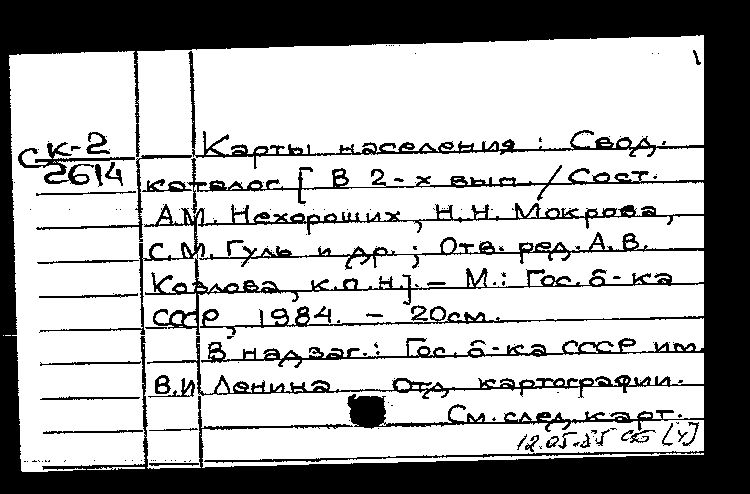 1
С К-2
2614
Карты населения : Свод.
каталог [ В 2-х вып. / Сост.
А.М. Нехороших, Н.Н. Мокрова,
С.М. Гуль и др. ; Отв. ред. А.В.
Козлова, к.п.н.]. – М.: Гос. б-ка
СССР, 1984. – 20см.
В надзаг.: Гос. б-ка СССР им.
В.И Ленина. Отд. картографии.
См. след. карт.
12.05.85 [4]